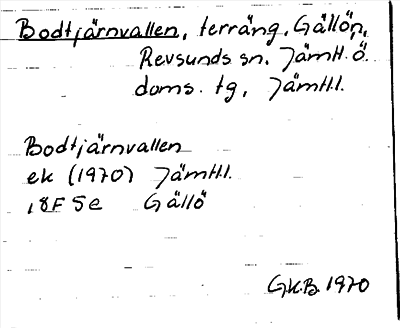 Bodtjärnvallen, terräng, Gällön,
Revsunds sn. Jämtl. ö.
doms. tg, Jämtl.l.
Bodtjärnvallen
ek (1970) Jämtl.l.
18F 5e Gällö
G.K.B. 1970